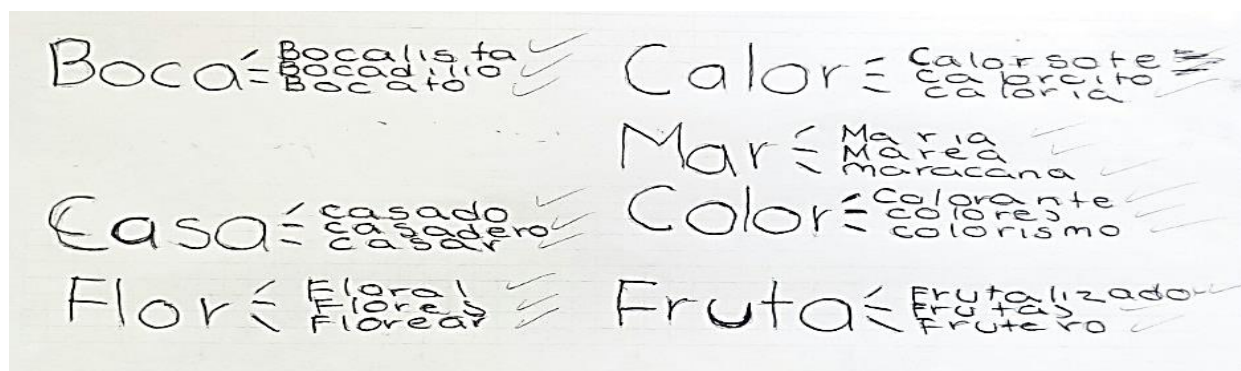 Boca Bocalista
Bocadillo
Bocato
Casa casado
casadero
casar
Flor Floral
Flores
Florear
Calor Calorsote
calorcito
caloria
Mar Maria
Marea
maracana
Color Colorante
colores
colorismo
Fruta Frutalizado
Frutas
Frutero